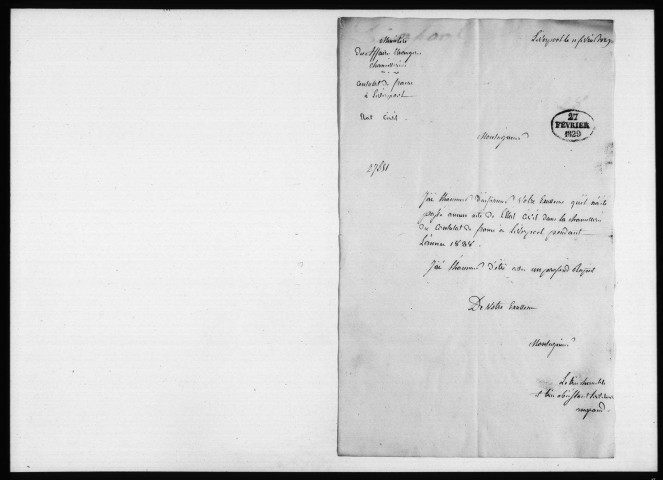 Ministère
des Affaires Etrangères
chancellerie
consulat de france
à Liverpool
Etat Civil.
Liverpool le
27
FÉVRIER
1829
Monseigneur
J'ai l'honneur d'informer Votre Excellence qu'il n'a été
passé aucun acte de l'Etat Civil dans la chancellerie
du Consulat de france à Liverpool pendant
l'année 1828.
J'ai l'honneur d'être avec un profond Respect
De Votre Excellence
Monseigneur
Le très humble
et très obéissant Serviteur